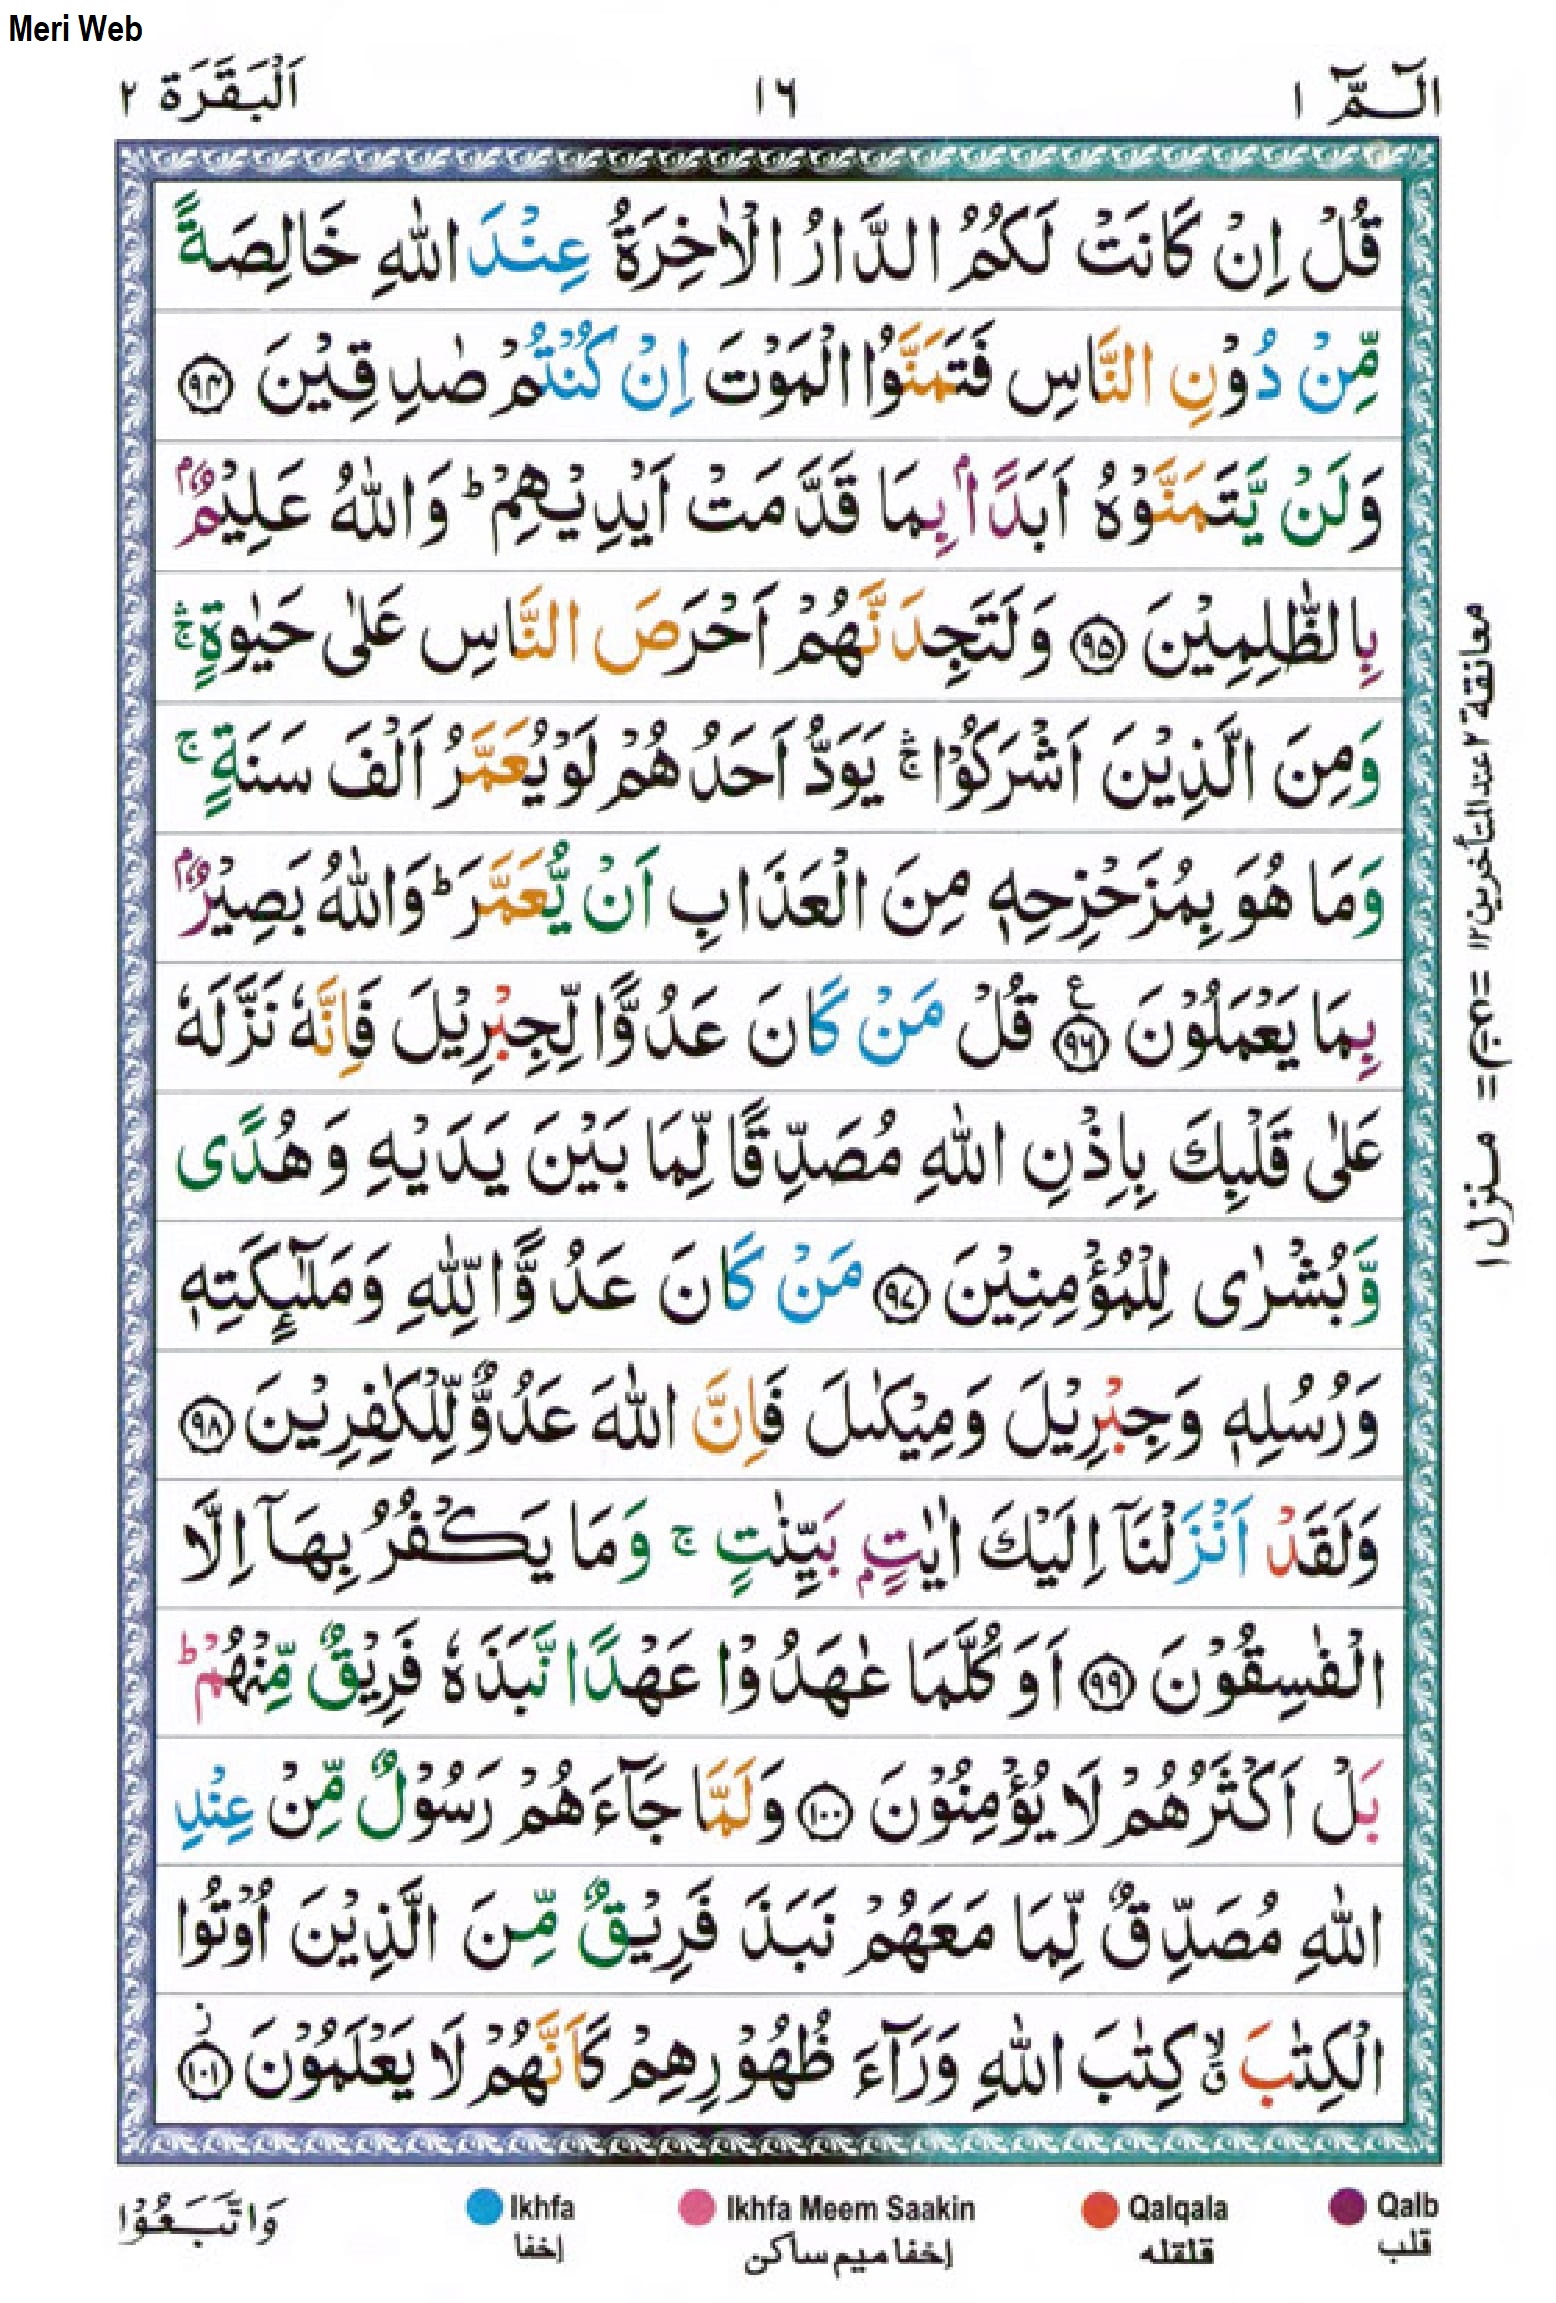 Meri Web
الٓمّٓ ١
١٦
اَلْبَقَرَة ٢
قُلْ اِنْ كَانَتْ لَكُمُ الدَّارُ الْاٰخِرَةُ عِنْدَ اللّٰهِ خَالِصَةً
مِّنْ دُوْنِ النَّاسِ فَتَمَنَّوُا الْمَوْتَ اِنْ كُنْتُمْ صٰدِقِيْنَ ﴿۹۴﴾
وَلَنْ يَّتَمَنَّوْهُ اَبَدًۢا بِمَا قَدَّمَتْ اَيْدِيْهِمْ ؕ وَاللّٰهُ عَلِيْمٌۢ
بِالظّٰلِمِيْنَ ﴿۹۵﴾ وَلَتَجِدَنَّهُمْ اَحْرَصَ النَّاسِ عَلٰى حَيٰوةٍ ۛۚ
وَمِنَ الَّذِيْنَ اَشْرَكُوْا ۛۚ يَوَدُّ اَحَدُهُمْ لَوْ يُعَمَّرُ اَلْفَ سَنَةٍ ۚ
وَمَا هُوَ بِمُزَحْزِحِهٖ مِنَ الْعَذَابِ اَنْ يُّعَمَّرَ ؕ وَاللّٰهُ بَصِيْرٌۢ
بِمَا يَعْمَلُوْنَ ﴿۹۶﴾ ع قُلْ مَنْ كَانَ عَدُوًّا لِّجِبْرِيْلَ فَاِنَّهٗ نَزَّلَهٗ
عَلٰى قَلْبِكَ بِاِذْنِ اللّٰهِ مُصَدِّقًا لِّمَا بَيْنَ يَدَيْهِ وَهُدًى
وَّبُشْرٰى لِلْمُؤْمِنِيْنَ ﴿۹۷﴾ مَنْ كَانَ عَدُوًّا لِّلّٰهِ وَمَلٰٓئِكَتِهٖ
وَرُسُلِهٖ وَجِبْرِيْلَ وَمِيْكٰىلَ فَاِنَّ اللّٰهَ عَدُوٌّ لِّلْكٰفِرِيْنَ ﴿۹۸﴾
وَلَقَدْ اَنْزَلْنَاۤ اِلَيْكَ اٰيٰتٍۭ بَيِّنٰتٍ ۚ وَمَا يَكْفُرُ بِهَاۤ اِلَّا
الْفٰسِقُوْنَ ﴿۹۹﴾ اَوَكُلَّمَا عٰهَدُوْا عَهْدًا نَّبَذَهٗ فَرِيْقٌ مِّنْهُمْ ؕ
بَلْ اَكْثَرُهُمْ لَا يُؤْمِنُوْنَ ﴿۱۰۰﴾ وَلَمَّا جَآءَهُمْ رَسُوْلٌ مِّنْ عِنْدِ
اللّٰهِ مُصَدِّقٌ لِّمَا مَعَهُمْ نَبَذَ فَرِيْقٌ مِّنَ الَّذِيْنَ اُوْتُوا
الْكِتٰبَ ۙۗ كِتٰبَ اللّٰهِ وَرَآءَ ظُهُوْرِهِمْ كَاَنَّهُمْ لَا يَعْلَمُوْنَ ﴿۱۰۱﴾ ز
معانقة ۲ عند المتأخرين ۱۲
منزل ۱
وَاتَّبَعُوْا
Ikhfa
إخفا
Ikhfa Meem Saakin
إخفا ميم ساكن
Qalqala
قلقله
Qalb
قلب